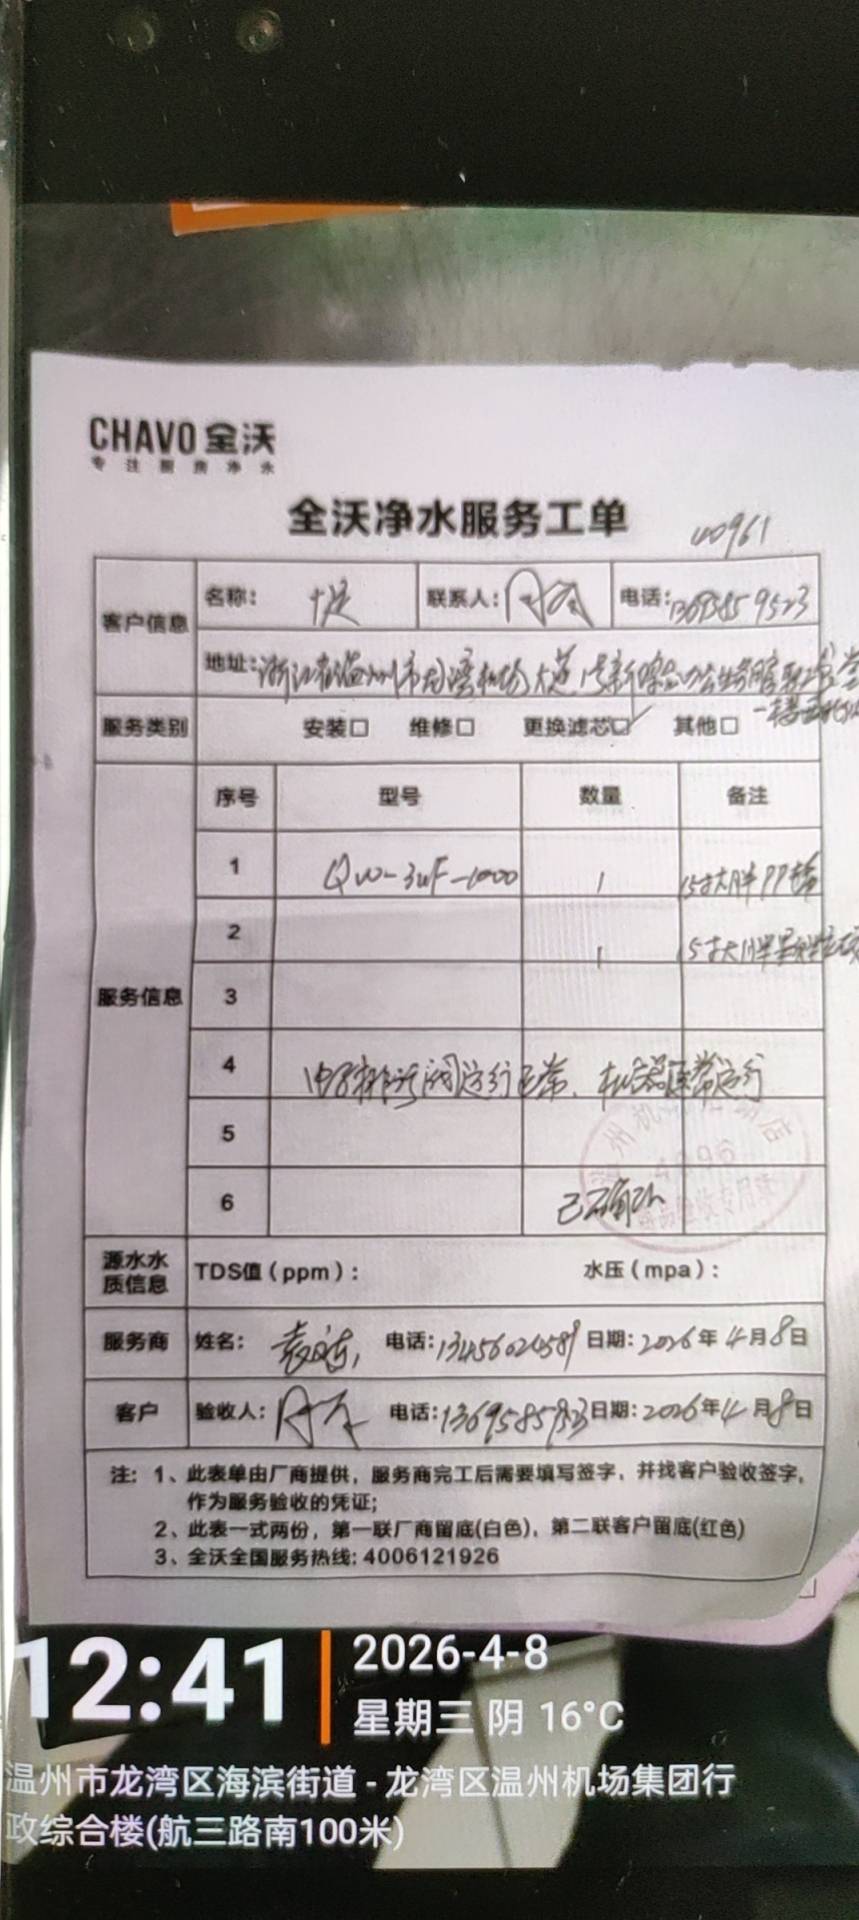 CHAVO 全沃
专注厨房净水
全沃净水服务工单
40961
客户信息 名称： 联系人： 电话：
地址：浙江省温州市龙湾机场大道1号新综合办公
服务类别 安装□ 维修□ 更换滤芯□✓ 其他□
序号 型号 数量 备注
服务信息
1 QW-3UF-1000 1 15寸大胖PP棉
2 1 15寸大胖
3
4 运行正常、机器正常运行
5
6 已确认
温州机 店
验收专用章
源水水质信息 TDS值（ppm）： 水压（mpa）：
服务商 姓名： 电话：13456024589 日期：2026年4月8日
客户 验收人： 电话： 日期：2026年4月8日
注：1、此表单由厂商提供，服务商完工后需要填写签字，并找客户验收签字，
作为服务验收的凭证；
2、此表一式两份，第一联厂商留底(白色)，第二联客户留底(红色)
3、全沃全国服务热线：4006121926
12:41 2026-4-8
星期三 阴 16°C
温州市龙湾区海滨街道 - 龙湾区温州机场集团行
政综合楼(航三路南100米)